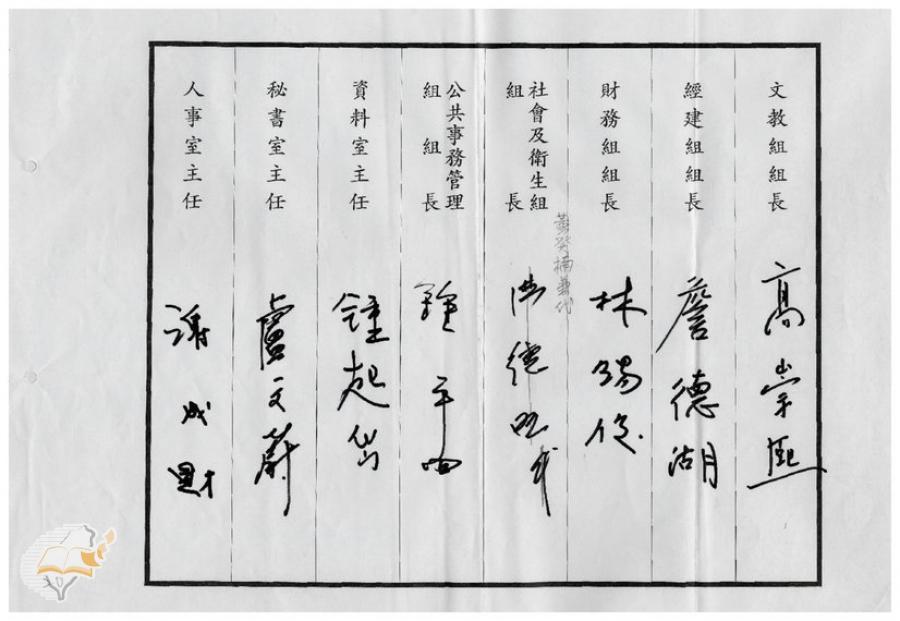 文教組組長
高崇熙
經建組組長
詹德湖
財務組組長
林錫俊
社會及衛生組
組長
黃癸楠兼代
洪德旋
公共事務管理
組組長
資料室主任
鍾起岱
秘書室主任
盧文蔚
人事室主任
謝成財